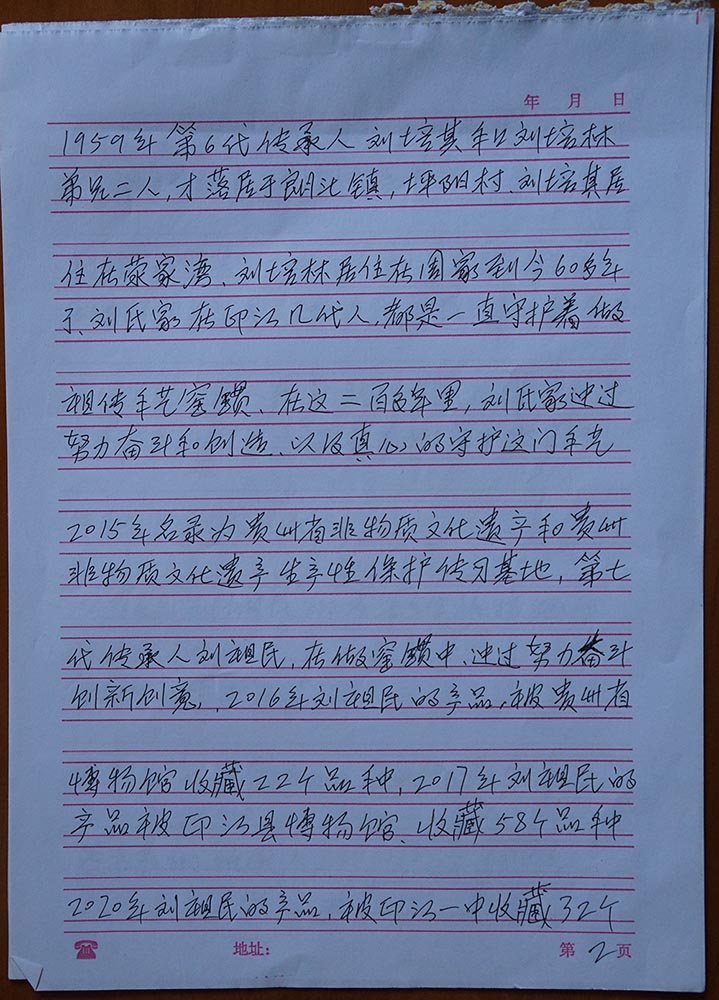 年 月 日
1959年第6代传承人刘培其和刘培林
弟兄二人,才落居于朗汕镇,坪阳村、刘培其居
住在蒙家湾、刘培林居住在周家到今60多年
了、刘氏家在印江几代人,都是一直守护着做
祖传手艺窑罐、在这二百多年里,刘氏家通过
努力奋斗和创造、以及真心的守护这门手艺
2015年名录为贵州省非物质文化遗产和贵州
非物质文化遗产生产性保护传习基地,第七
代传承人刘祖民,在做窑罐中、通过努力奋斗
创新创意,2016年刘祖民的产品,被贵州省
博物馆收藏22个品种,2017年刘祖民的
产品被印江县博物馆、收藏58个品种
2020年刘祖民的产品,被印江一中收藏32个
地址: 第 2 页